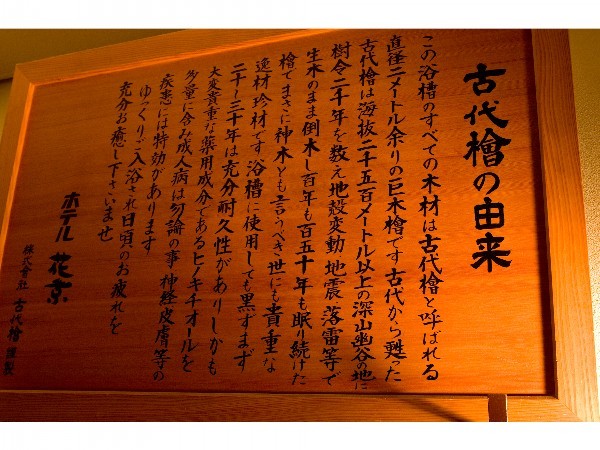 古代檜の由来
この浴槽のすべての木材は古代檜と呼ばれる
直径二メートル余りの巨木檜です古代から甦った
古代檜は海抜二千五百メートル以上の深山幽谷の地に
樹令二千年を数え地殻変動 地震 落雷等で
生木のまま倒木し百年も百五十年も眠り続けた
檜でまさに神木とも言うべき世にも貴重な
逸材 珍材です 浴槽に使用しても黒ずまず
二十～三十年は充分耐久性がありしかも
大変貴重な薬用成分であるヒノキチオールを
多量に含み成人病は勿論の事 神経皮膚等の
疾患には特効があります
ゆっくりご入浴され日頃のお疲れを
充分お癒し下さいませ
ホテル 花京
株式會社 古代檜 謹製